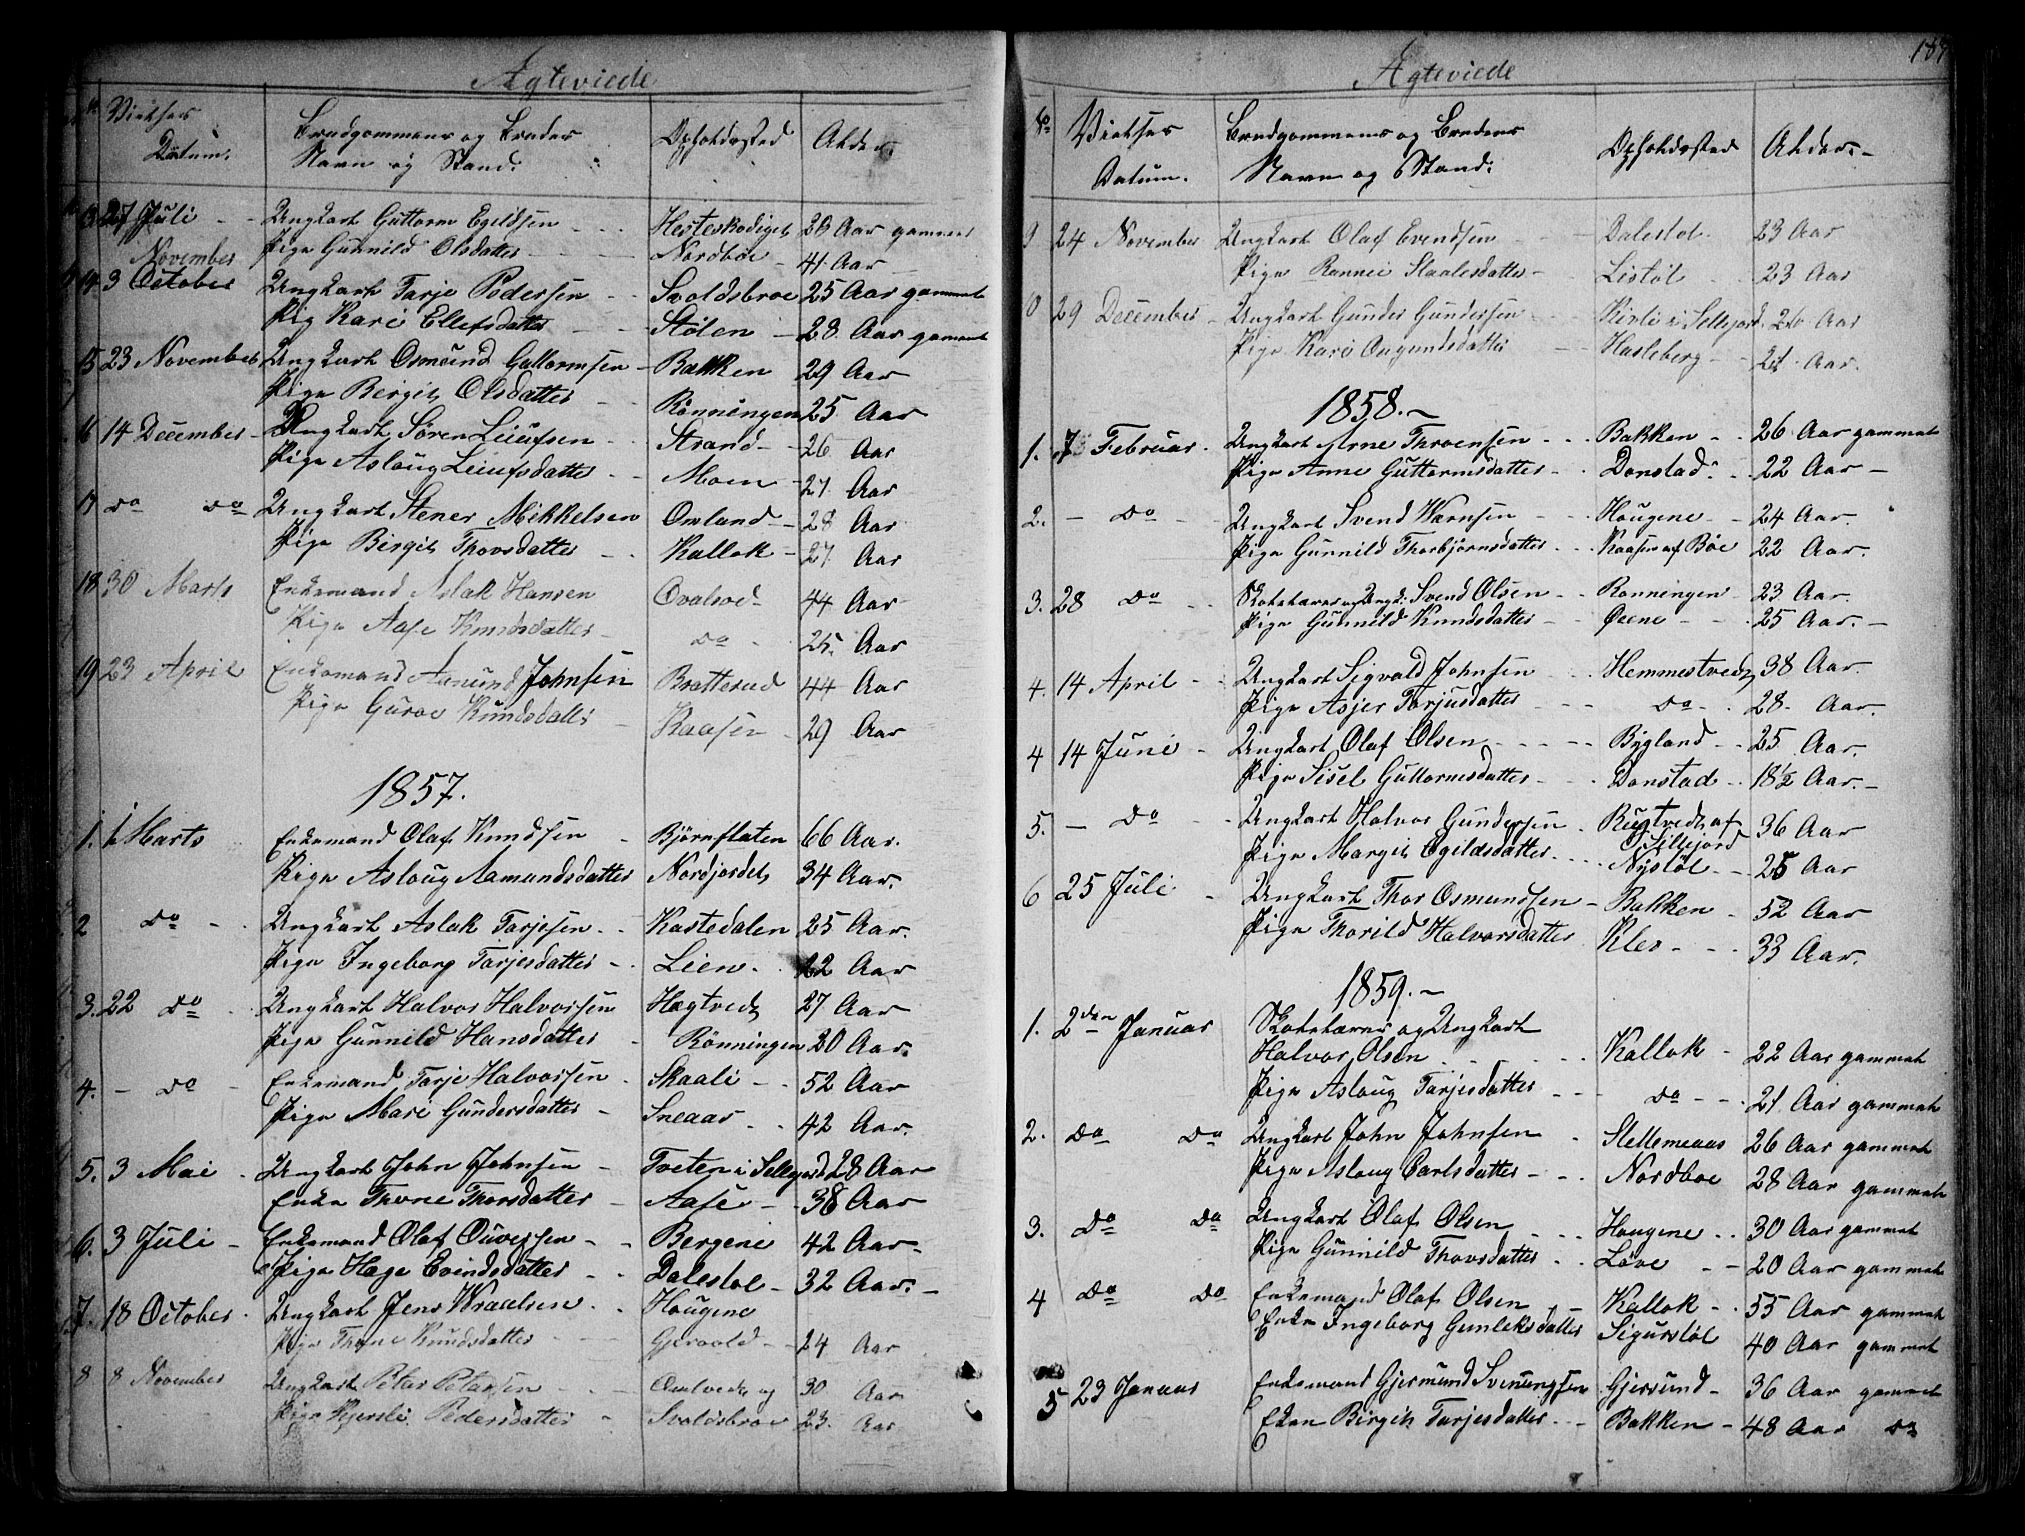 Ægteviede
No Vielses Datum. Brudgommens og Brudens Navn og Stand. Opholdssted Alder
13 27 Juli Ungkarl Guttorm Egildsen Hesteskodiget 28 Aar gammel
Pige Gunnild Olsdatter Nordbøe 41 Aar
November
14 3 October Ungkarl Tarje Pedersen Svoldsbroe 25 Aar gammel
Pig Kari Ellefsdatter Stølen 28 Aar gammel
15 23 November Ungkarl Osmund Guttormsen Bakken 29 Aar
Pige Bergit Olsdatter Rønningen 25 Aar
16 14 December Ungkarl Søren Leiufsen Strand 26 Aar
Pige Aslaug Leiufsdatter Moen 27 Aar
17 do do Ungkarl Stener Mikkelsen Omland 28 Aar
Pige Birgit Thovsdatter Kallok 27 Aar
18 30 Marts Enkemand Aslak Hansen 44 Aar
Pige Aase Knudsdatter do 25 Aar
19 23 April Enkemand Amund Johnsen Bratterud 44 Aar
Pige Guroe Knudsdatter Kaasen 29 Aar
1857.
1. 1 Marts Enkemand Olaf Knudsen Bjørnflaten 66 Aar.
Pige Aslaug Aamundsdatter Nordjordet 34 Aar.
2 do Ungkarl Aslak Tarjesen Kastedalen 25 Aar.
Pige Ingeborg Tarjesdatter Lien 22 Aar
3. 22 do Ungkarl Halvor Halvorsen Hægtvedt 27 Aar
Pige Gunnild Hansdatter Rönningen 20 Aar.
4. do Enkemand Tarje Halvorsen Skaali 52 Aar
Pige Mari Gundersdatter Sneaas 42 Aar.
5. 3 Mai Ungkarl John Johnsen Tveten i Sellejord 28 Aar
Enke Thone Thorsdatter Aase 38 Aar
6. 3 Juli Enkemand Olaf Ouversen Bergene 42 Aar
Pige Hæge Evindsdatter Dalestøl 32 Aar.
7. 18 October Ungkarl Jens Wraalsen Hougene
Pige Thone Knudsdatter Gjervold 24 Aar
8 8 November Ungkarl Peter Petersen 30 Aar
Pige Kjersti Pedersdatter Svoldsbroe 23 Aar
189
Ægteviede
No Vielses Datum. Brudgommens og Brudens Navn og Stand. Opholdssted Alder.
9 24 November Ungkarl Olaf Evendsen Dalestøl 23 Aar
Pige Rannei Staalesdatter Listøl 23 Aar
0 29 December Ungkarl Gunder Gundersen Kivli i Sellejord 26 Aar
Pige Kari Ougundsdatter Hasleberg 21 Aar.
1858.
1. 7 Februar. Ungkarl Arne Throensen Bakken 26 Aar gammel
Pige Anne Guttormsdatter Donstad 22 Aar
2. do Ungkarl Svend Wærnsen Hougene 24 Aar.
Pige Gunnild Thorbjørnsdatter Kaasen af Bøe 22 Aar.
3. 28 do Skoleholder og Ungk. Svend Olsen Rønningen 23 Aar.
Pige Gunnild Knudsdatter Øeene 25 Aar.
4. 14 April Ungkarl Sigvald Johnsen Hemmestvedt 38 Aar.
Pige Asjer Tarjusdatter do 28 Aar.
4 14 Juni Ungkarl Olaf Olsen Bÿgland 25 Aar.
Pige Sisel Guttormsdatter Donstad 18½ Aar.
5. do Ungkarl Halvor Gundersen Rugtvedt af Sillejord 36 Aar
Pige Margit Egildsdatter Nystøl 25 Aar
6 25 Juli Ungkarl Thor Osmundsen Bakken 52 Aar
Pige Thorild Halvorsdatter Klev 33 Aar.
1859.
1. 2den Januar Skolelærer og Ungkarl
Halvor Olsen Kallok 22 Aar gammel
Pige Aslaug Tarjesdatter do 21 Aar gammel
2. do do Ungkarl John Johnsen Stellemeaas 26 Aar gammel
Pige Aslaug Carlsdatter Nordbøe 28 Aar gammel
3. do do Ungkarl Olaf Olsen Hougene 30 Aar gammel
Pige Gunnild Thovsdatter Løve 20 Aar gammel
4 do do Enkemand Olaf Olsen Kallok 55 Aar gammel
Enke Ingeborg Gunleksdatter Sigurstøl 40 Aar gammel
5 23 Januar Enkemand Gjermund Svenungsen Gjersund 36 Aar gammel
Enken Birgit Tarjesdatter Bakken 48 Aar do